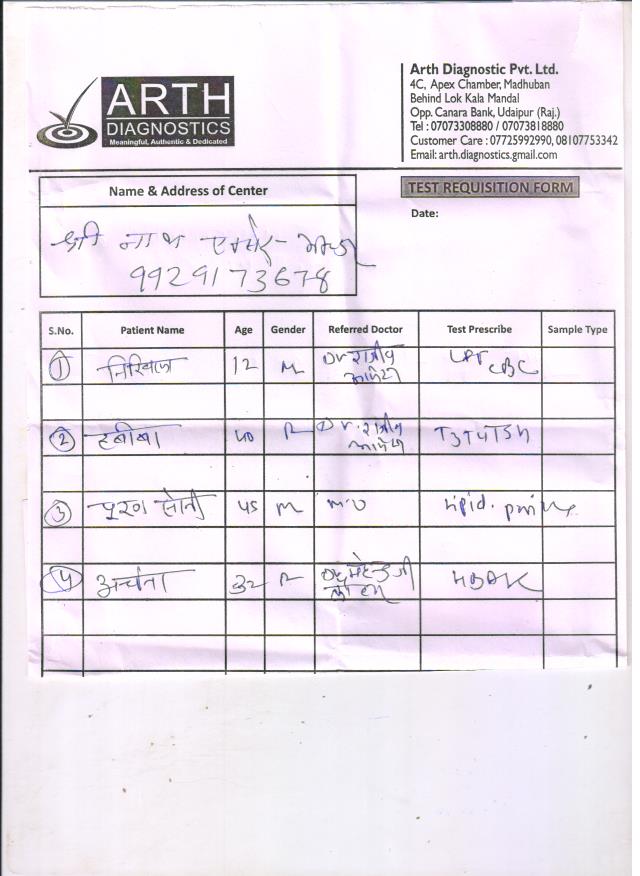 ARTH
DIAGNOSTICS
Meaningful, Authentic & Dedicated
Arth Diagnostic Pvt. Ltd.
4C, Apex Chamber, Madhuban
Behind Lok Kala Mandal
Opp. Canara Bank, Udaipur (Raj.)
Tel : 07073308880 / 07073818880
Customer Care : 07725992990, 08107753342
Email: arth.diagnostics.gmail.com
Name & Address of Center
TEST REQUISITION FORM
Date:
श्री नाथ
9929173678
S.No. Patient Name Age Gender Referred Doctor Test Prescribe Sample Type
1 निखिल 12 M Dr राजीव LFT CBC
2 हबीबा 40 F Dr. राजीव T3T4TSH
3 पूरण सोनी 45 M M.O Lipid.
4 अर्चना 32 F